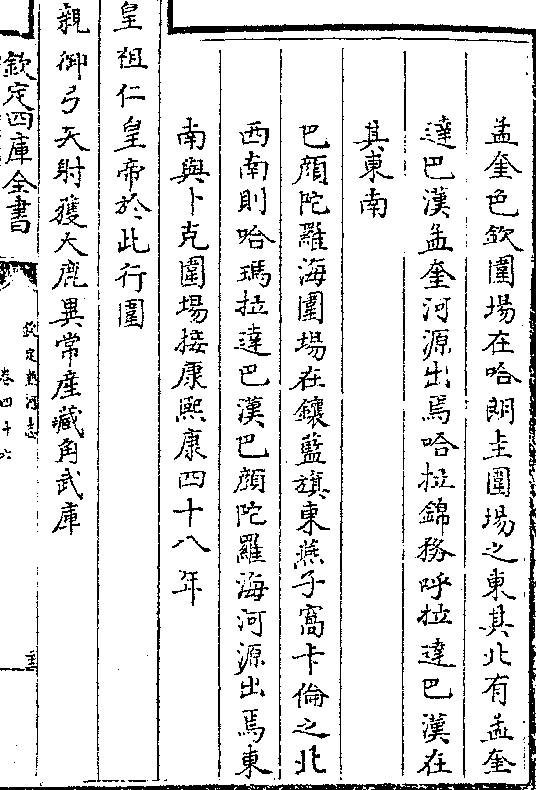 孟奎色欽圍場在哈朗圭圍場之東其北有孟奎
達巴漢孟奎河源出焉哈拉錦務呼拉達巴漢在
其東南
巴顔陀羅海圍場在鑲藍旗東燕子窩卡倫之北
西南則哈瑪拉達巴漢巴顔陀羅海河源出焉東
南與卜克圍場接康熙康四十八年
皇祖仁皇帝於此行圍
親御弓矢射獲大鹿異常産藏角武庫
欽定四庫全書
欽定熱河志
卷四十六